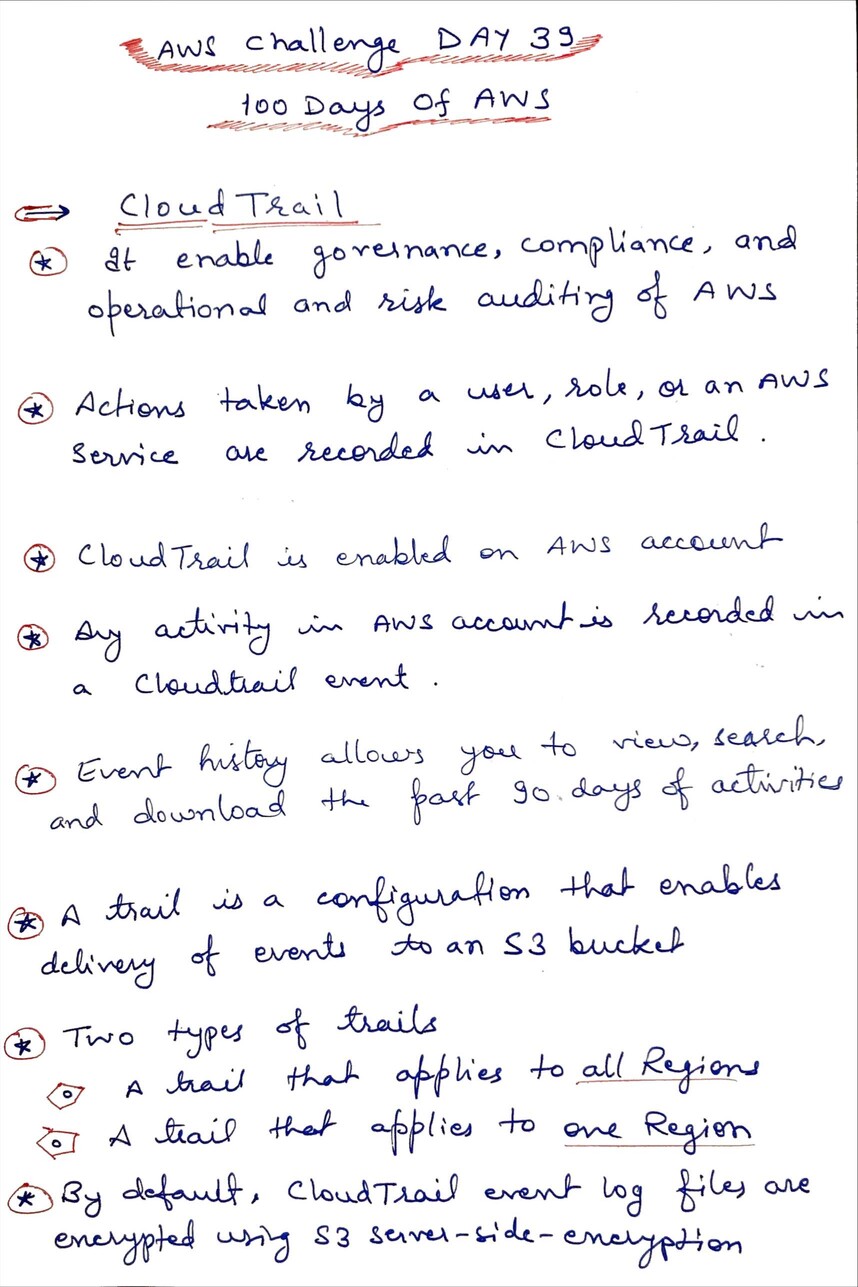 AWS Challenge DAY 39
100 Days Of AWS
⇒ CloudTrail
It enable governance, compliance, and
operational and risk auditing of AWS
Actions taken by a user, role, or an AWS
Service are recorded in CloudTrail.
CloudTrail is enabled on AWS account
Any activity in AWS account is recorded in
a Cloudtrail event.
Event history allows you to view, search,
and download the past 90 days of activities
A trail is a configuration that enables
delivery of events to an S3 bucket
Two types of trails
A trail that applies to all Regions
A trail that applies to one Region
By default, CloudTrail event log files are
encrypted using S3 server-side-encryption